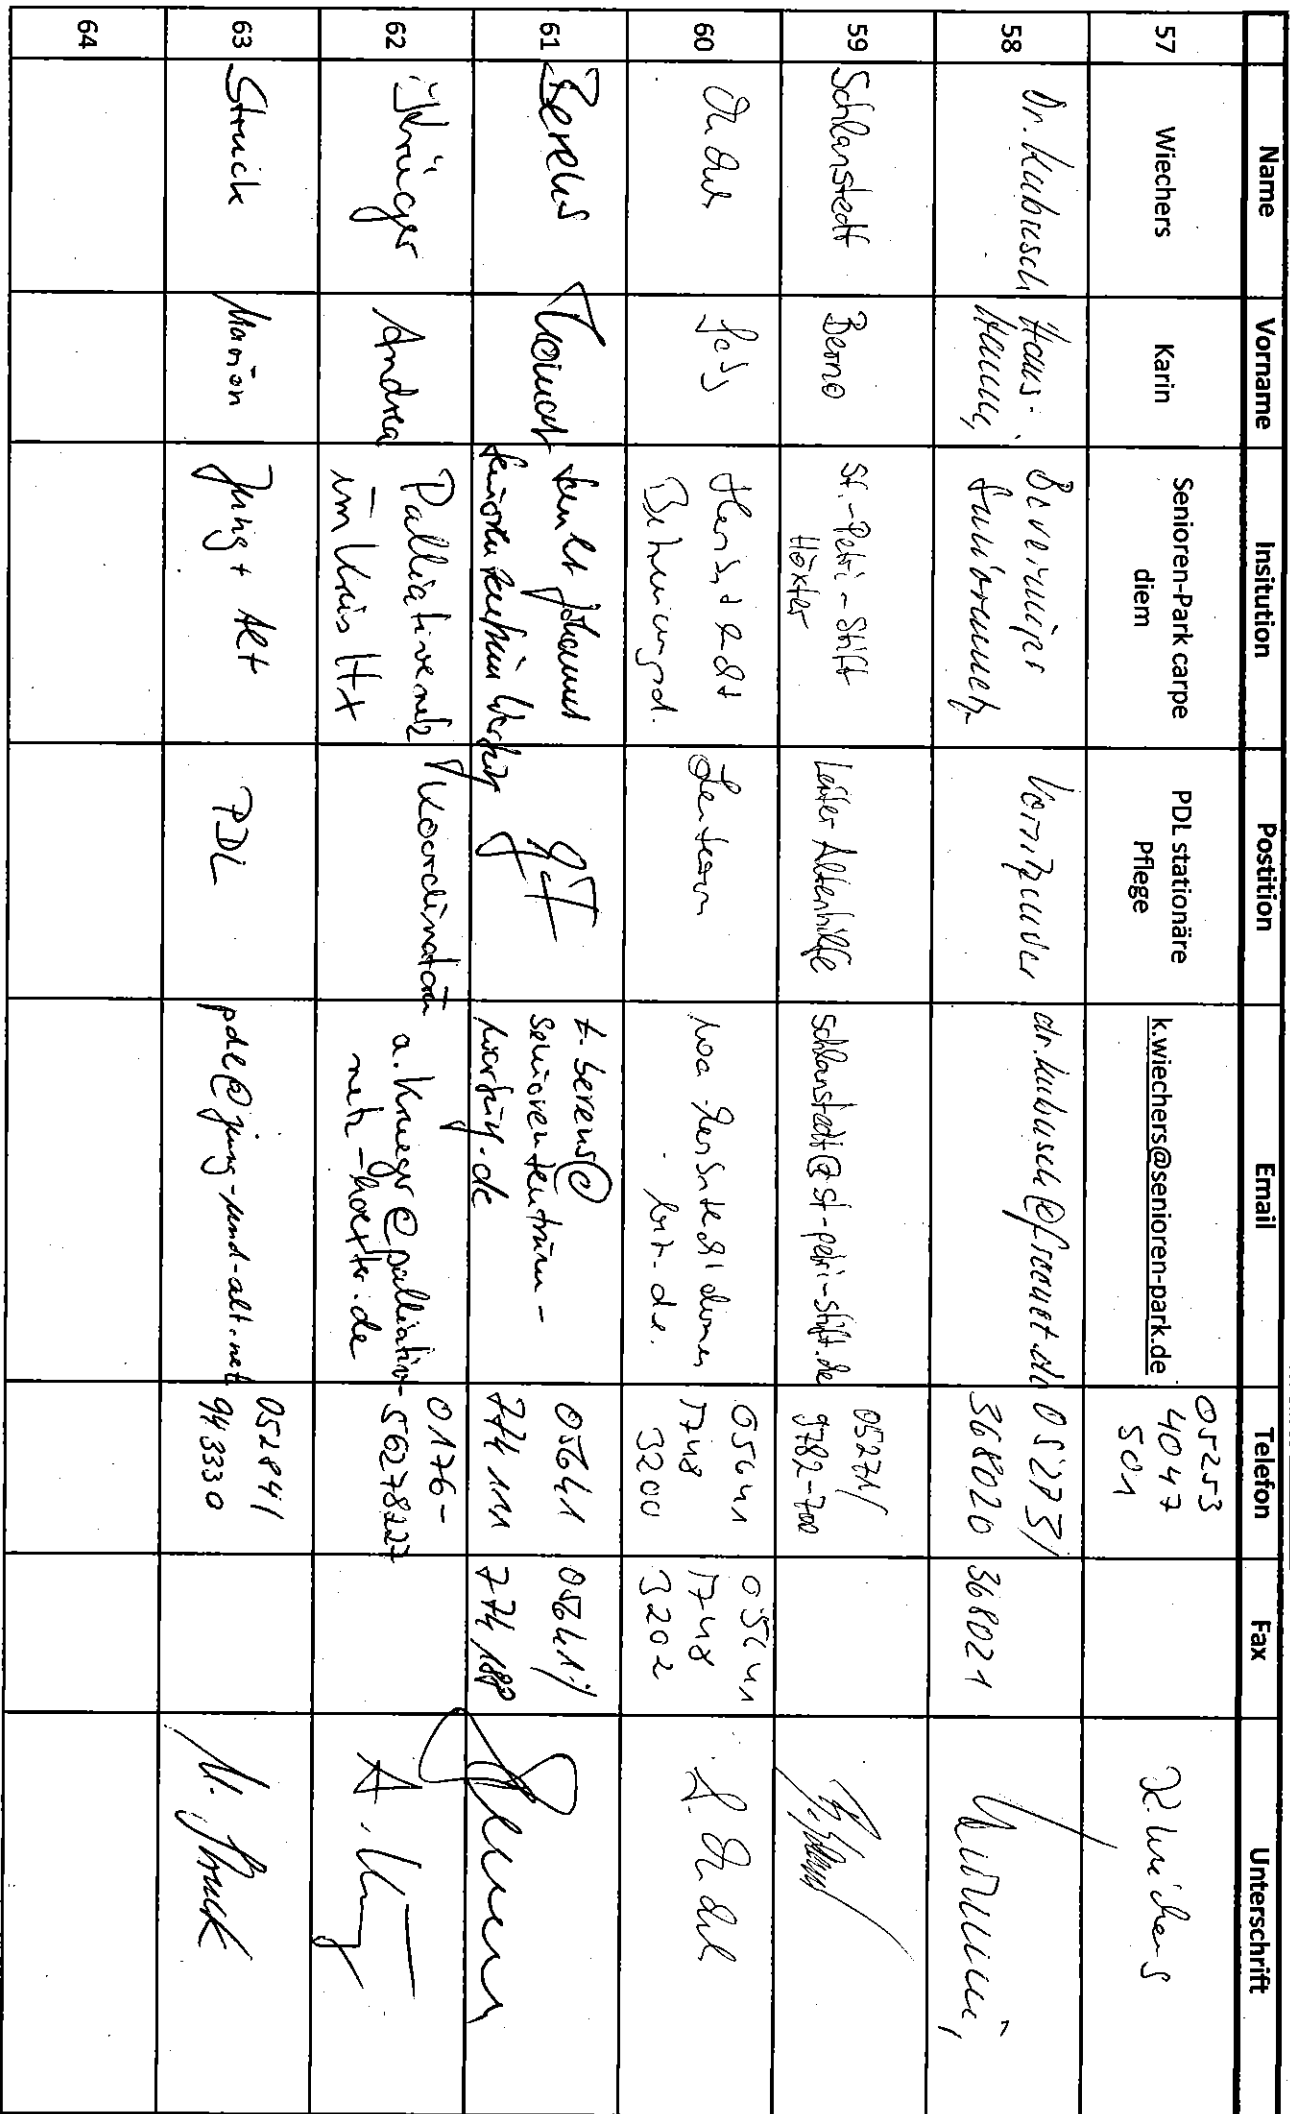 Name Vorname Insitution Postition Email Telefon Fax Unterschrift
57 Wiechers Karin Senioren-Park carpe diem PDL stationäre Pflege k.wiechers@senioren-park.de 05253 4047 501
58 Dr. Kubusch Beverunger Vorsitzender 05273/ 368020 368021
59 Schlanstedt Berno St.-Petri-Stift Höxter Leiter Altenhilfe schlanstedt@st-petri-stift.de 05271/ 9782-700
60 Leiterin 05641 1748 3200 05641 1748 3202
61 Berens GF t.berens@ seniorenzentrum- warburg.de 05641 774 111 05641/ 774 188
62 Krüger Andrea Palliativnetz im Kreis HX Koordinatorin a.krueger@palliativ- netz-hoexter.de 0176- 56278227
63 Struck Marion Jung + Alt PDL pdl@jung-und-alt.net 052841 943330 M. Struck
64